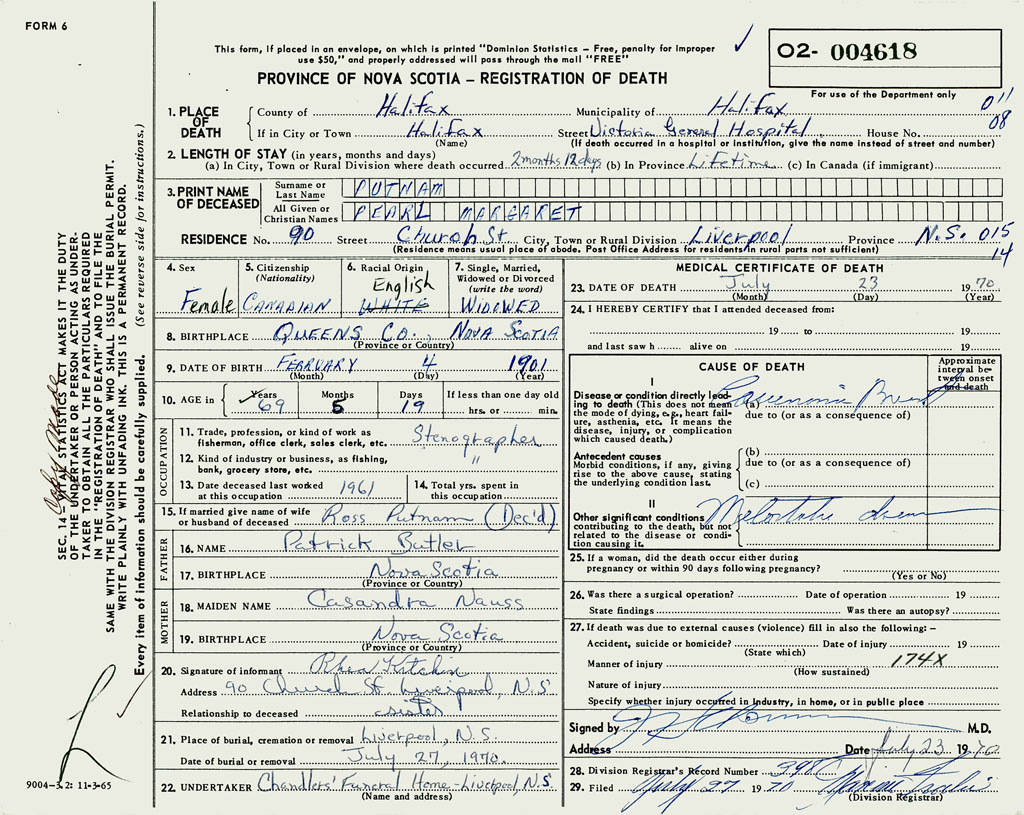 FORM 6
This form, if placed in an envelope, on which is printed "Dominion Statistics – Free, penalty for improper
use $50," and properly addressed will pass through the mail "FREE"
02- 004618
For use of the Department only
PROVINCE OF NOVA SCOTIA – REGISTRATION OF DEATH
1. PLACE OF DEATH
County of Halifax Municipality of Halifax 011
If in City or Town Halifax Street Victoria General Hospital House No. 08
(Name) (If death occurred in a hospital or institution, give the name instead of street and number)
2. LENGTH OF STAY (in years, months and days)
(a) In City, Town or Rural Division where death occurred 2 months 12 days (b) In Province Lifetime (c) In Canada (if immigrant)
3. PRINT NAME OF DECEASED
Surname or Last Name PUTNAM
All Given or Christian Names PEARL MARGARET
RESIDENCE No. 90 Street Church St. City, Town or Rural Division Liverpool Province N.S. 015
(Residence means usual place of abode. Post Office Address for residents in rural parts not sufficient) 14
4. Sex
Female
5. Citizenship (Nationality)
CANADIAN
6. Racial Origin
English
WHITE
7. Single, Married, Widowed or Divorced (write the word)
WIDOWED
8. BIRTHPLACE QUEENS CO., NOVA SCOTIA
(Province or Country)
9. DATE OF BIRTH FEBRUARY 4 1901
(Month) (Day) (Year)
10. AGE in Years Months Days If less than one day old
69 5 19 hrs. or min.
OCCUPATION
11. Trade, profession, or kind of work as
fisherman, office clerk, sales clerk, etc. Stenographer
12. Kind of industry or business, as fishing,
bank, grocery store, etc. "
13. Date deceased last worked
at this occupation 1961
14. Total yrs. spent in
this occupation
15. If married give name of wife
or husband of deceased Ross Putnam (Dec'd)
FATHER
16. NAME Patrick Butler
17. BIRTHPLACE Nova Scotia
(Province or Country)
MOTHER
18. MAIDEN NAME Casandra Nauss
19. BIRTHPLACE Nova Scotia
(Province or Country)
20. Signature of informant Rhea Kitchin
Address 90 Church St Liverpool, N.S.
Relationship to deceased sister
21. Place of burial, cremation or removal Liverpool, N.S.
Date of burial or removal July 27, 1970.
22. UNDERTAKER Chandlers' Funeral Home - Liverpool, N.S.
(Name and address)
MEDICAL CERTIFICATE OF DEATH
23. DATE OF DEATH July 23 1970
(Month) (Day) (Year)
24. I HEREBY CERTIFY that I attended deceased from:
19 to 19
and last saw h alive on 19
CAUSE OF DEATH
Approximate interval between onset and death
I
Disease or condition directly leading to death (This does not mean the mode of dying, e.g., heart failure, asthenia, etc. It means the disease, injury, or complication which caused death.)
(a) Carcinoma Breast
due to (or as a consequence of)
Antecedent causes
Morbid conditions, if any, giving rise to the above cause, stating the underlying condition last.
(b)
due to (or as a consequence of)
(c)
II
Other significant conditions contributing to the death, but not related to the disease or condition causing it.
25. If a woman, did the death occur either during
pregnancy or within 90 days following pregnancy?
(Yes or No)
26. Was there a surgical operation? Date of operation 19
State findings Was there an autopsy?
27. If death was due to external causes (violence) fill in also the following: –
Accident, suicide or homicide? Date of injury 19
(State which)
Manner of injury 174X
(How sustained)
Nature of injury
Specify whether injury occurred in industry, in home, or in public place
Signed by M.D.
Address Date July 23 1970
28. Division Registrar's Record Number 398
29. Filed July 27 1970
(Division Registrar)
SEC. 14 – VITAL STATISTICS ACT MAKES IT THE DUTY
OF THE UNDERTAKER OR PERSON ACTING AS UNDER-
TAKER TO OBTAIN ALL THE PARTICULARS REQUIRED
IN THE "REGISTRATION OF DEATH" AND TO FILE THE
SAME WITH THE DIVISION REGISTRAR WHO SHALL ISSUE THE BURIAL PERMIT.
WRITE PLAINLY WITH UNFADING INK. THIS IS A PERMANENT RECORD.
Every item of information should be carefully supplied. (See reverse side for instructions.)
9004–3.2: 11-3-65